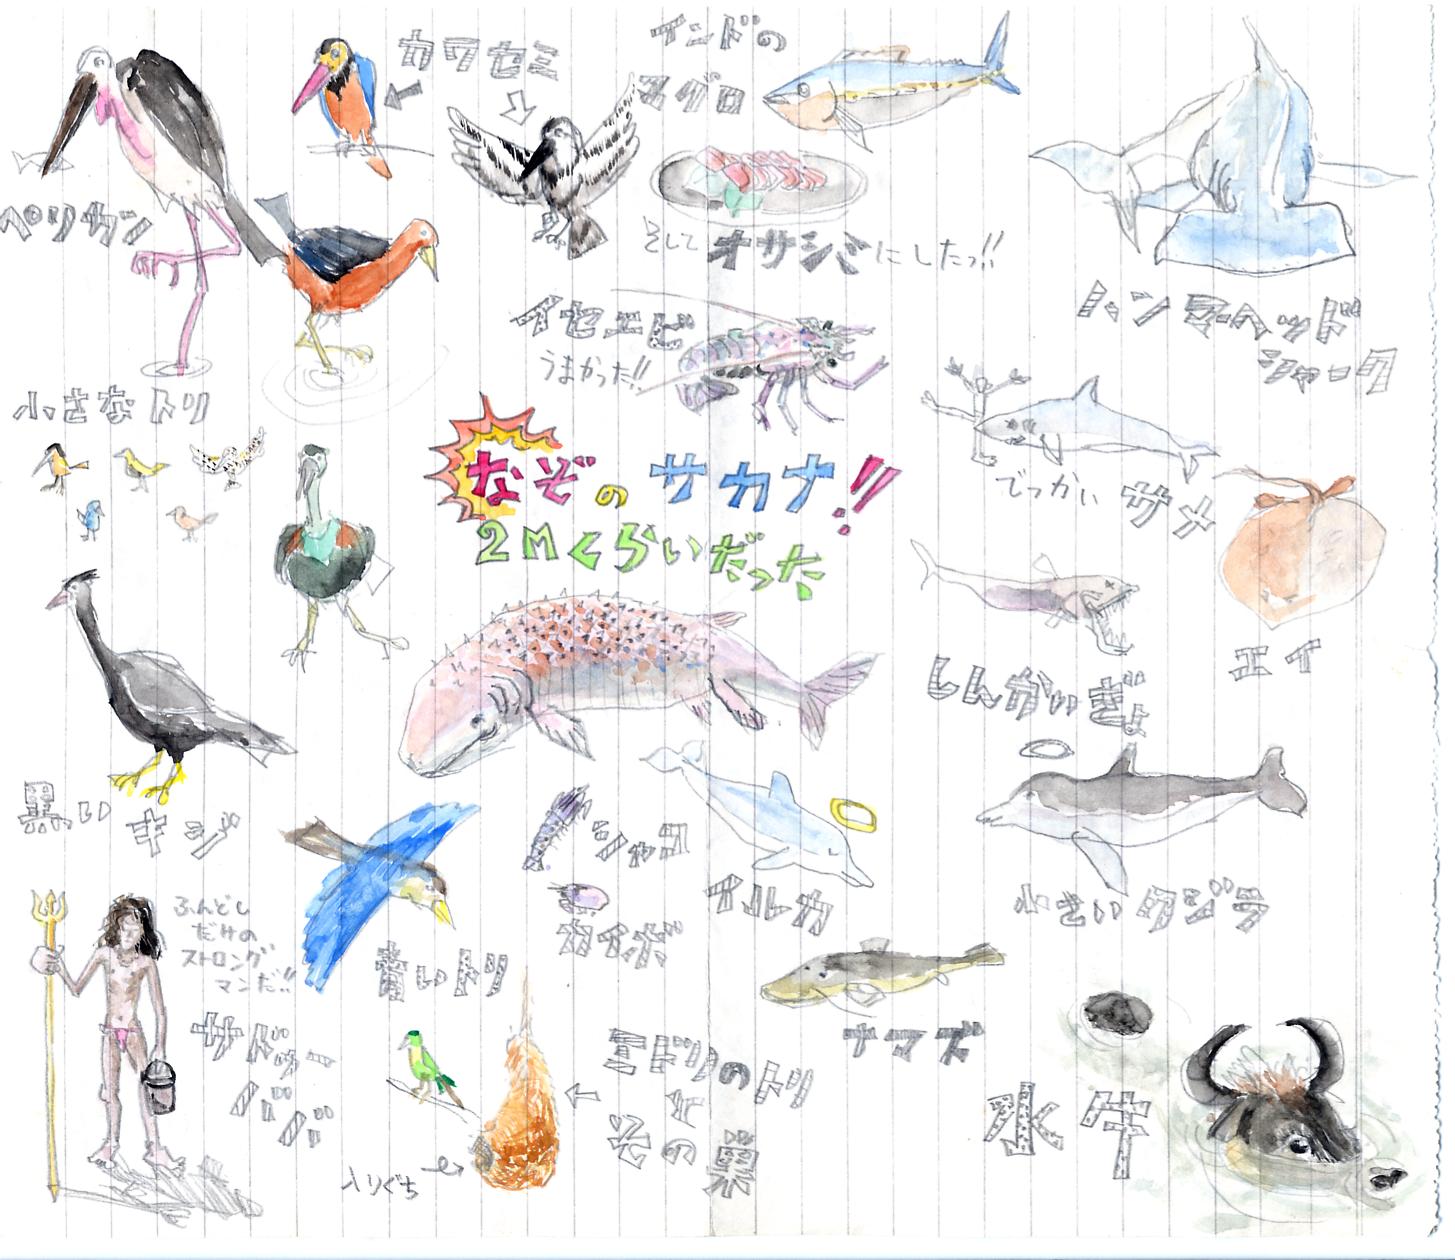 カワセミ
インドの
マグロ
ペリカン
そして オサシミ にしたっ!!
イセエビ
うまかった!!
ハンマーヘッド
シャーク
小さなトリ
なぞのサカナ!!
2Mくらいだった
でっかい サメ
エイ
しんがいぎょ
黒い キジ
シャコ
カイボ
イルカ
小さいクジラ
ふんどし
だけの
ストロング
マンだ!!
サドゥー
ババ
青いトリ
ナマズ
ミドリのトリ
と
その巣
入りぐち
水牛